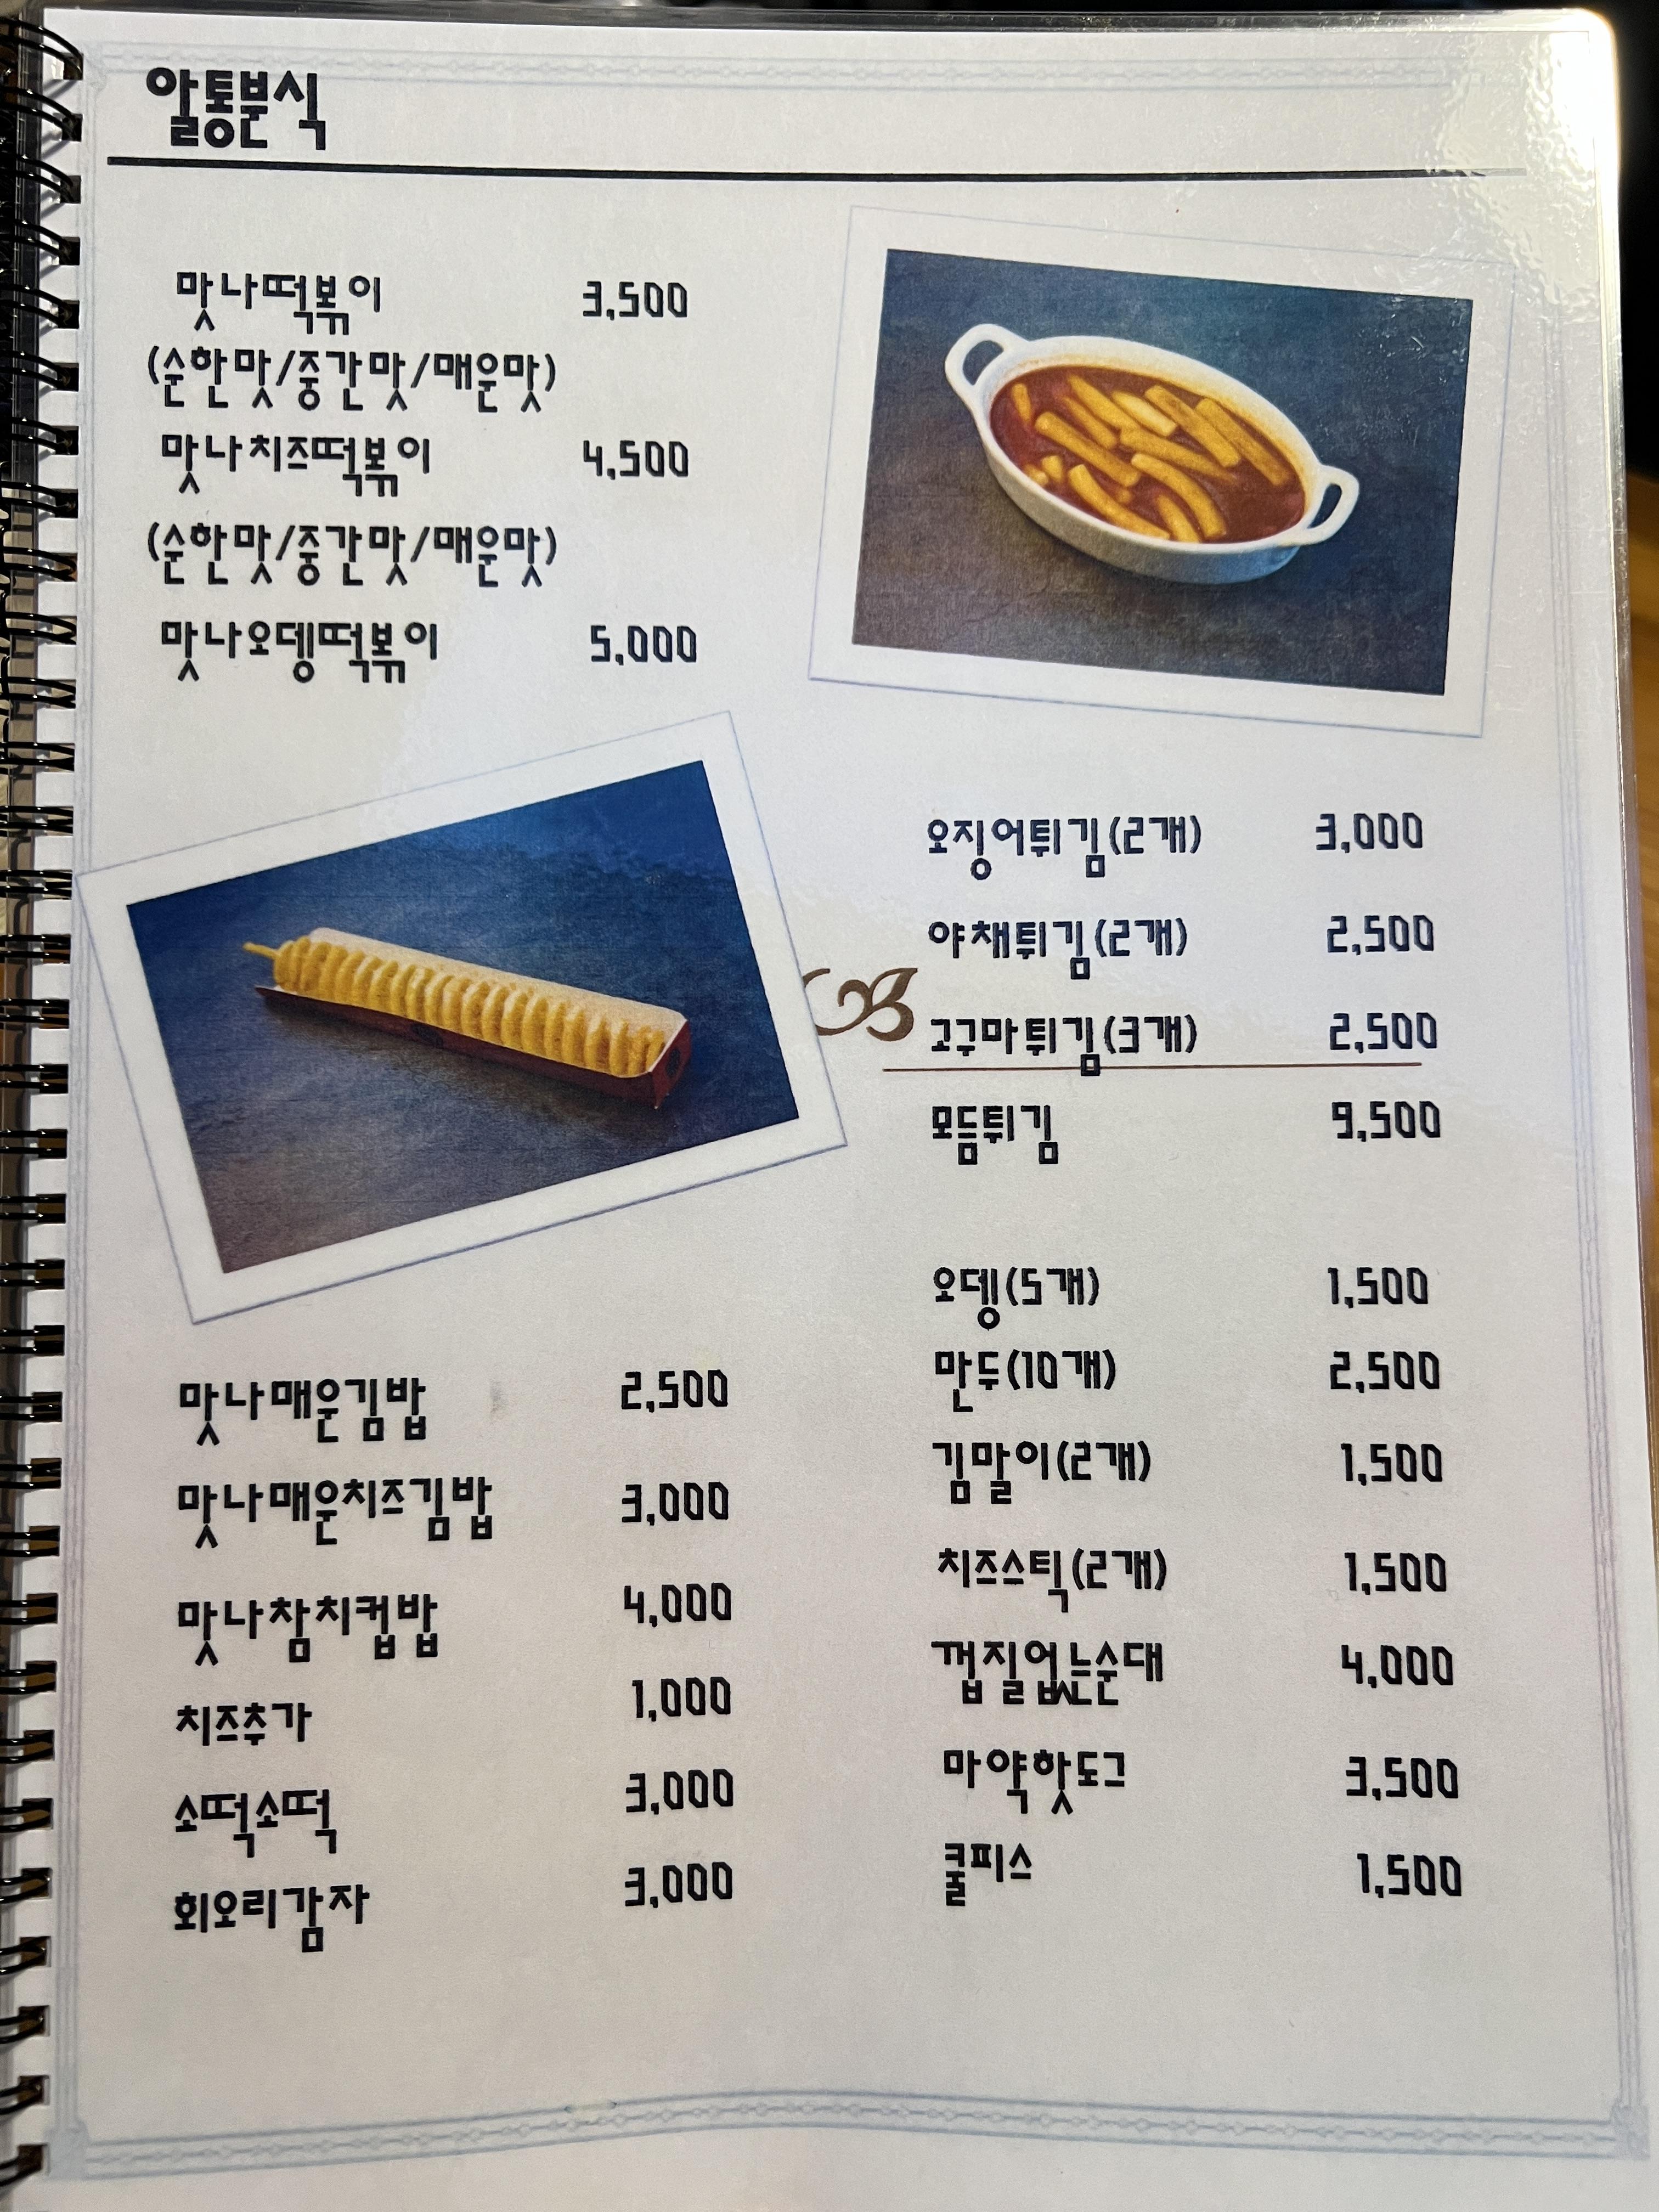 알통분식
맛나떡볶이 3,500
(순한맛/중간맛/매운맛)
맛나치즈떡볶이 4,500
(순한맛/중간맛/매운맛)
맛나오뎅떡볶이 5,000
오징어튀김(2개) 3,000
야채튀김(2개) 2,500
고구마튀김(3개) 2,500
모듬튀김 9,500
맛나매운김밥 2,500
맛나매운치즈김밥 3,000
맛나참치컵밥 4,000
치즈추가 1,000
소떡소떡 3,000
회오리감자 3,000
오뎅(5개) 1,500
만두(10개) 2,500
김말이(2개) 1,500
치즈스틱(2개) 1,500
껍질없는순대 4,000
마약핫도그 3,500
쿨피스 1,500